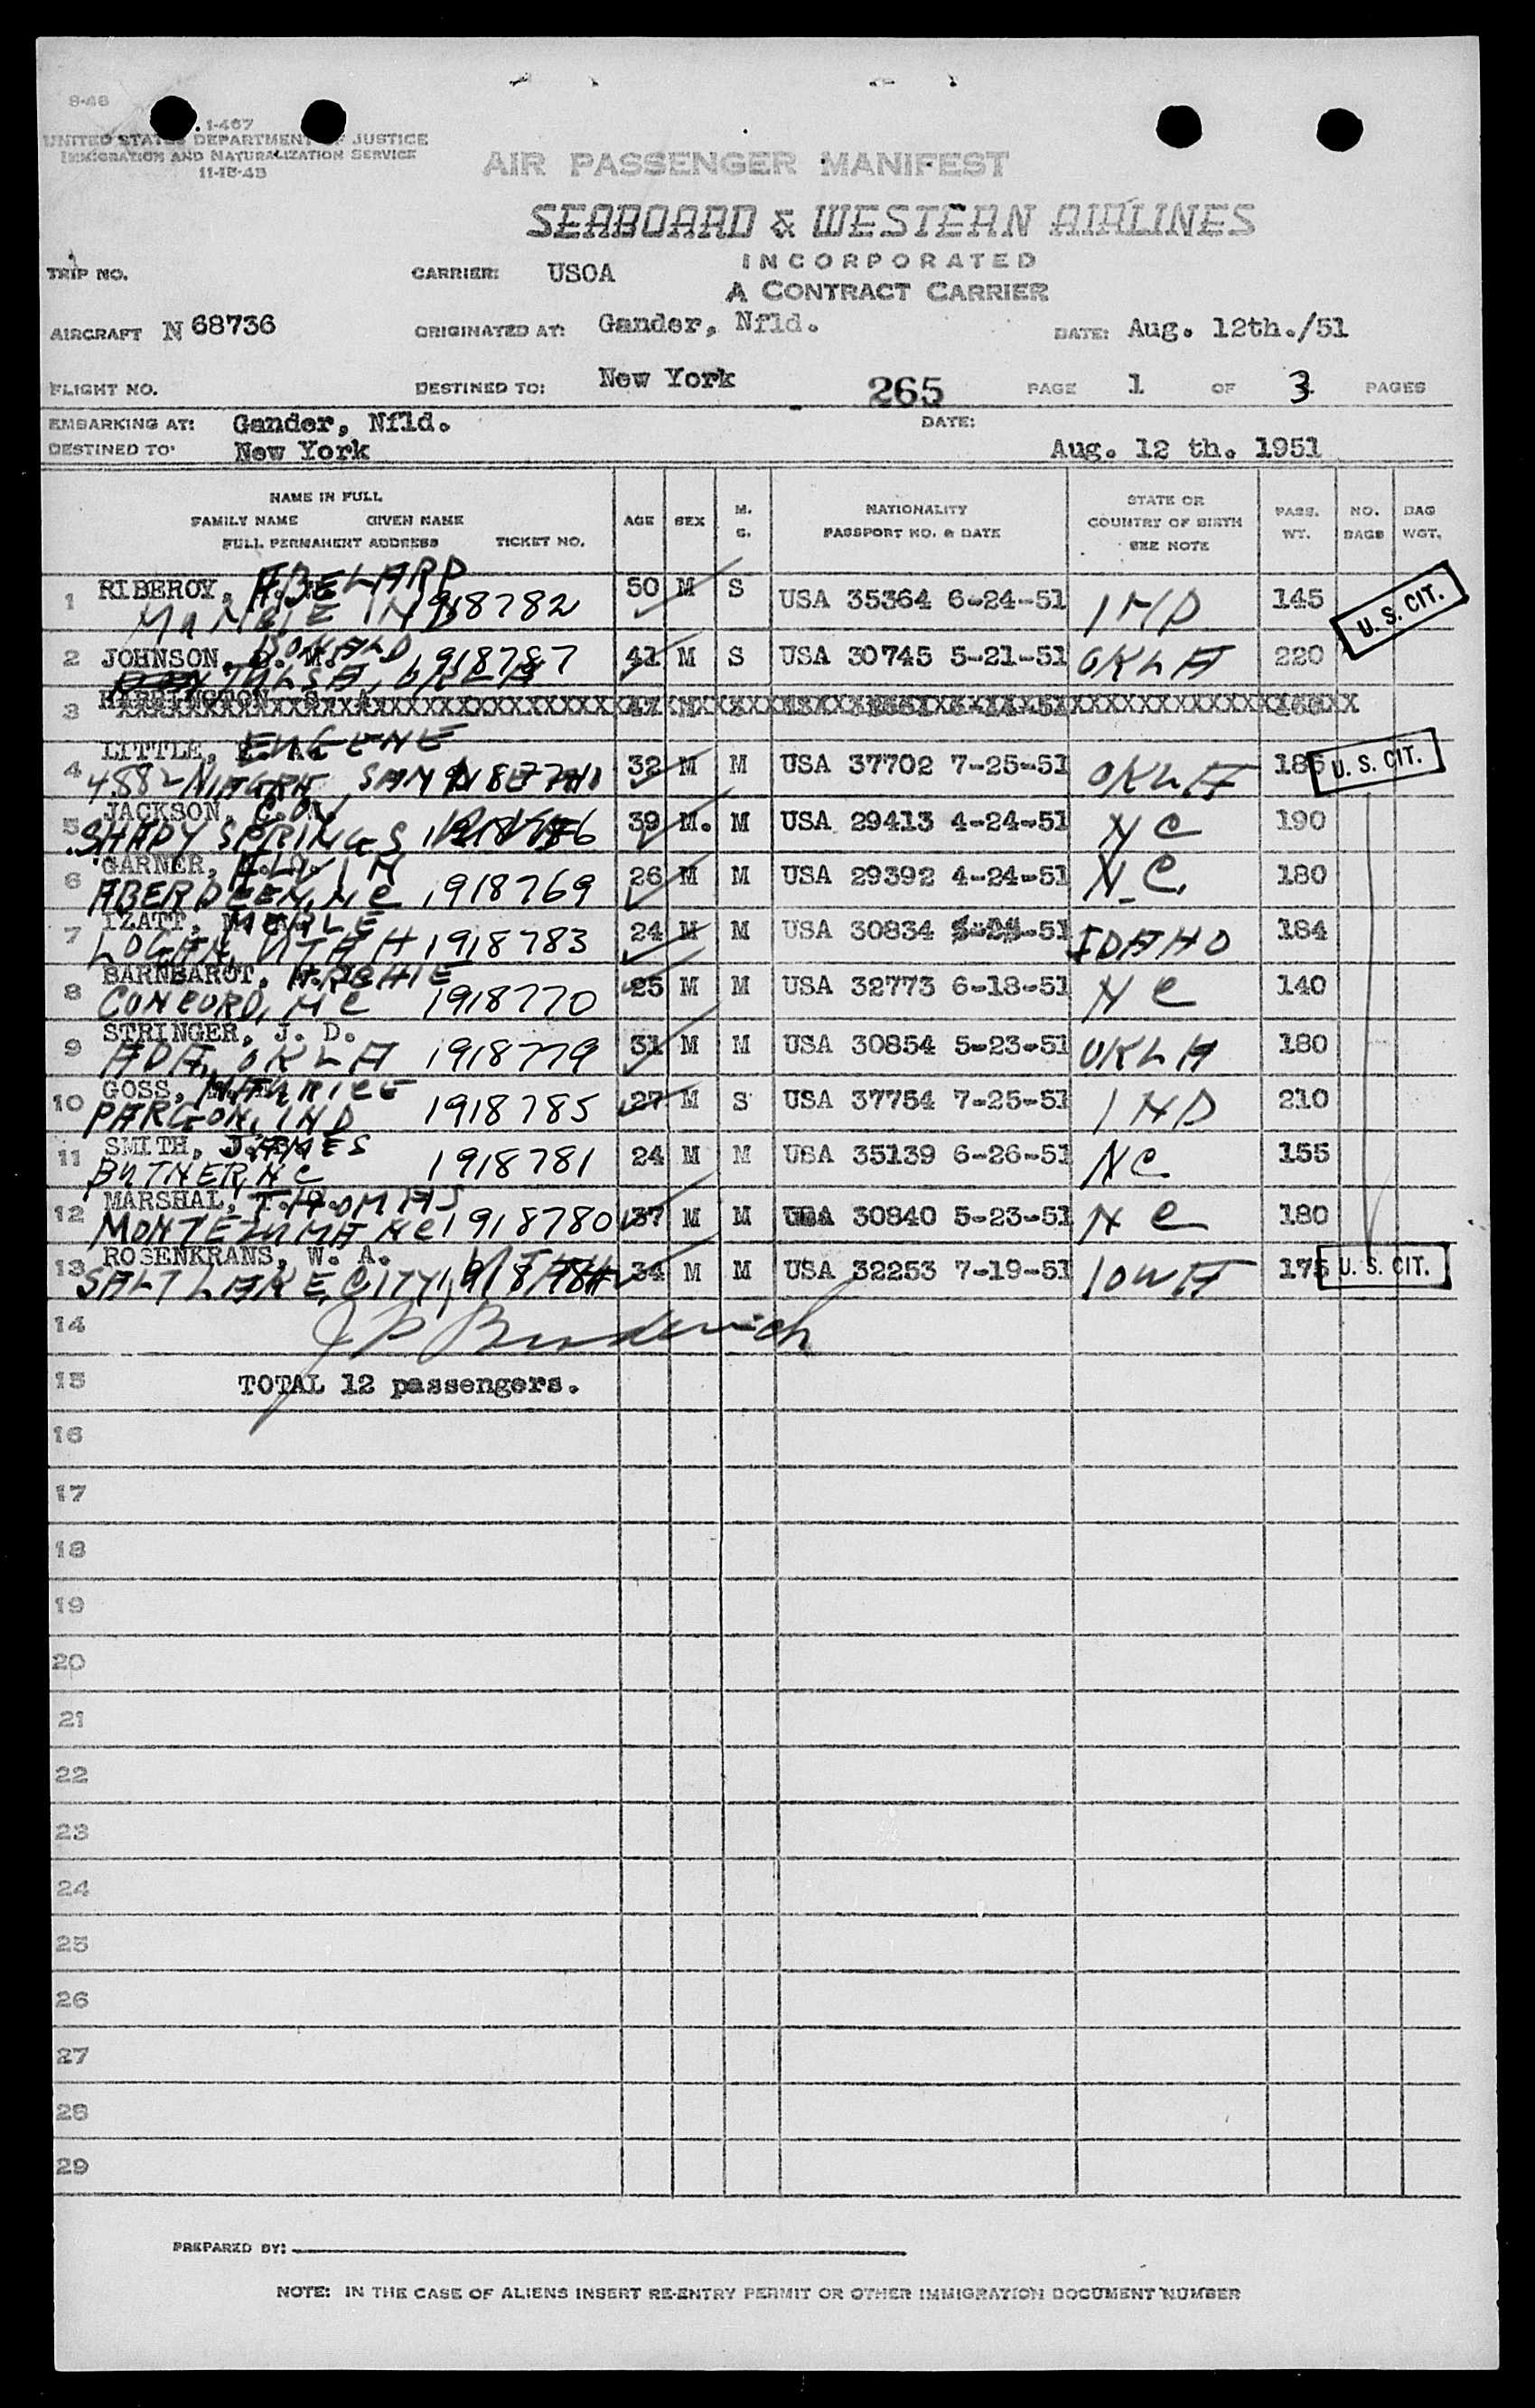 9-46
1-467
UNITED STATES DEPARTMENT OF JUSTICE
IMMIGRATION AND NATURALIZATION SERVICE
11-15-43
AIR PASSENGER MANIFEST
SEABOARD & WESTERN AIRLINES
INCORPORATED
A CONTRACT CARRIER
TRIP NO. CARRIER: USOA
AIRCRAFT N 68736 ORIGINATED AT: Gander, Nfld. DATE: Aug. 12th./51
FLIGHT NO. DESTINED TO: New York 265 PAGE 1 OF 3 PAGES
EMBARKING AT: Gander, Nfld. DATE:
DESTINED TO: New York Aug. 12 th. 1951
NAME IN FULL
FAMILY NAME GIVEN NAME
FULL PERMANENT ADDRESS TICKET NO.
AGE SEX M. S. NATIONALITY PASSPORT NO. & DATE STATE OR COUNTRY OF BIRTH SEE NOTE PASS. WT. NO. BAGS BAG WGT.
1 RIBEROY, ABELARD 50 M S USA 35364 6-24-51 IND 145 U. S. CIT.
MUNCIE IND 1918782
2 JOHNSON, DONALD 41 M S USA 30745 5-21-51 OKLA 220
TULSA, OKLA 1918787
3 HARRINGTON
4 LITTLE, EUGENE 32 M M USA 37702 7-25-51 OKLA 185 U. S. CIT.
4882 NIAGRA, SAN
5 JACKSON, 39 M. M USA 29413 4-24-51 NC 190
SHADY SPRINGS
6 GARNER, 26 M M USA 29392 4-24-51 N.C. 180
ABERDEEN, NC 1918769
7 IZATT, MERLE 24 M M USA 30834 IDAHO 184
LOGAN, UTAH 1918783
8 BARNBAROT, ARCHIE 25 M M USA 32773 6-18-51 NC 140
CONCORD, NC 1918770
9 STRINGER, J. D. 31 M M USA 30854 5-23-51 OKLA 180
ADA, OKLA 1918779
10 GOSS, MAURICE 27 M S USA 37754 7-25-51 IND 210
PARGON, IND 1918785
11 SMITH, JAMES 24 M M USA 35139 6-26-51 NC 155
BUTNER, NC 1918781
12 MARSHAL, THOMAS 37 M M USA 30840 5-23-51 NC 180
MONTEZUMA NC 1918780
13 ROSENKRANS, W. A. 34 M M USA 32253 7-19-51 IOWA 175 U. S. CIT.
SALT LAKE CITY, UTAH
14
15 TOTAL 12 passengers.
16
17
18
19
20
21
22
23
24
25
26
27
28
29
PREPARED BY:
NOTE: IN THE CASE OF ALIENS INSERT RE-ENTRY PERMIT OR OTHER IMMIGRATION DOCUMENT NUMBER